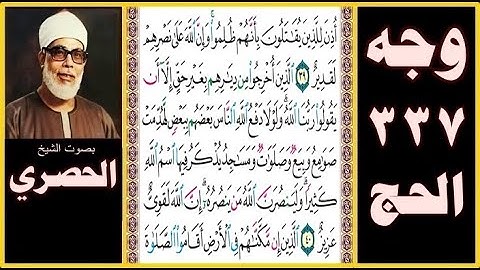 وجه
٣٣٧
الحج
أُذِنَ لِلَّذِينَ يُقَٰتَلُونَ بِأَنَّهُمْ ظُلِمُوا۟ ۚ وَإِنَّ ٱللَّهَ عَلَىٰ نَصْرِهِمْ
لَقَدِيرٌ ٣٩ ٱلَّذِينَ أُخْرِجُوا۟ مِن دِيَٰرِهِم بِغَيْرِ حَقٍّ إِلَّآ أَن
يَقُولُوا۟ رَبُّنَا ٱللَّهُ ۗ وَلَوْلَا دَفْعُ ٱللَّهِ ٱلنَّاسَ بَعْضَهُم بِبَعْضٍ لَّهُدِّمَتْ
صَوَٰمِعُ وَبِيَعٌ وَصَلَوَٰتٌ وَمَسَٰجِدُ يُذْكَرُ فِيهَا ٱسْمُ ٱللَّهِ
كَثِيرًا ۗ وَلَيَنصُرَنَّ ٱللَّهُ مَن يَنصُرُهُۥٓ ۗ إِنَّ ٱللَّهَ لَقَوِىٌّ
عَزِيزٌ ٤٠ ٱلَّذِينَ إِن مَّكَّنَّٰهُمْ فِى ٱلْأَرْضِ أَقَامُوا۟ ٱلصَّلَوٰةَ
بصوت الشيخ
الحصري